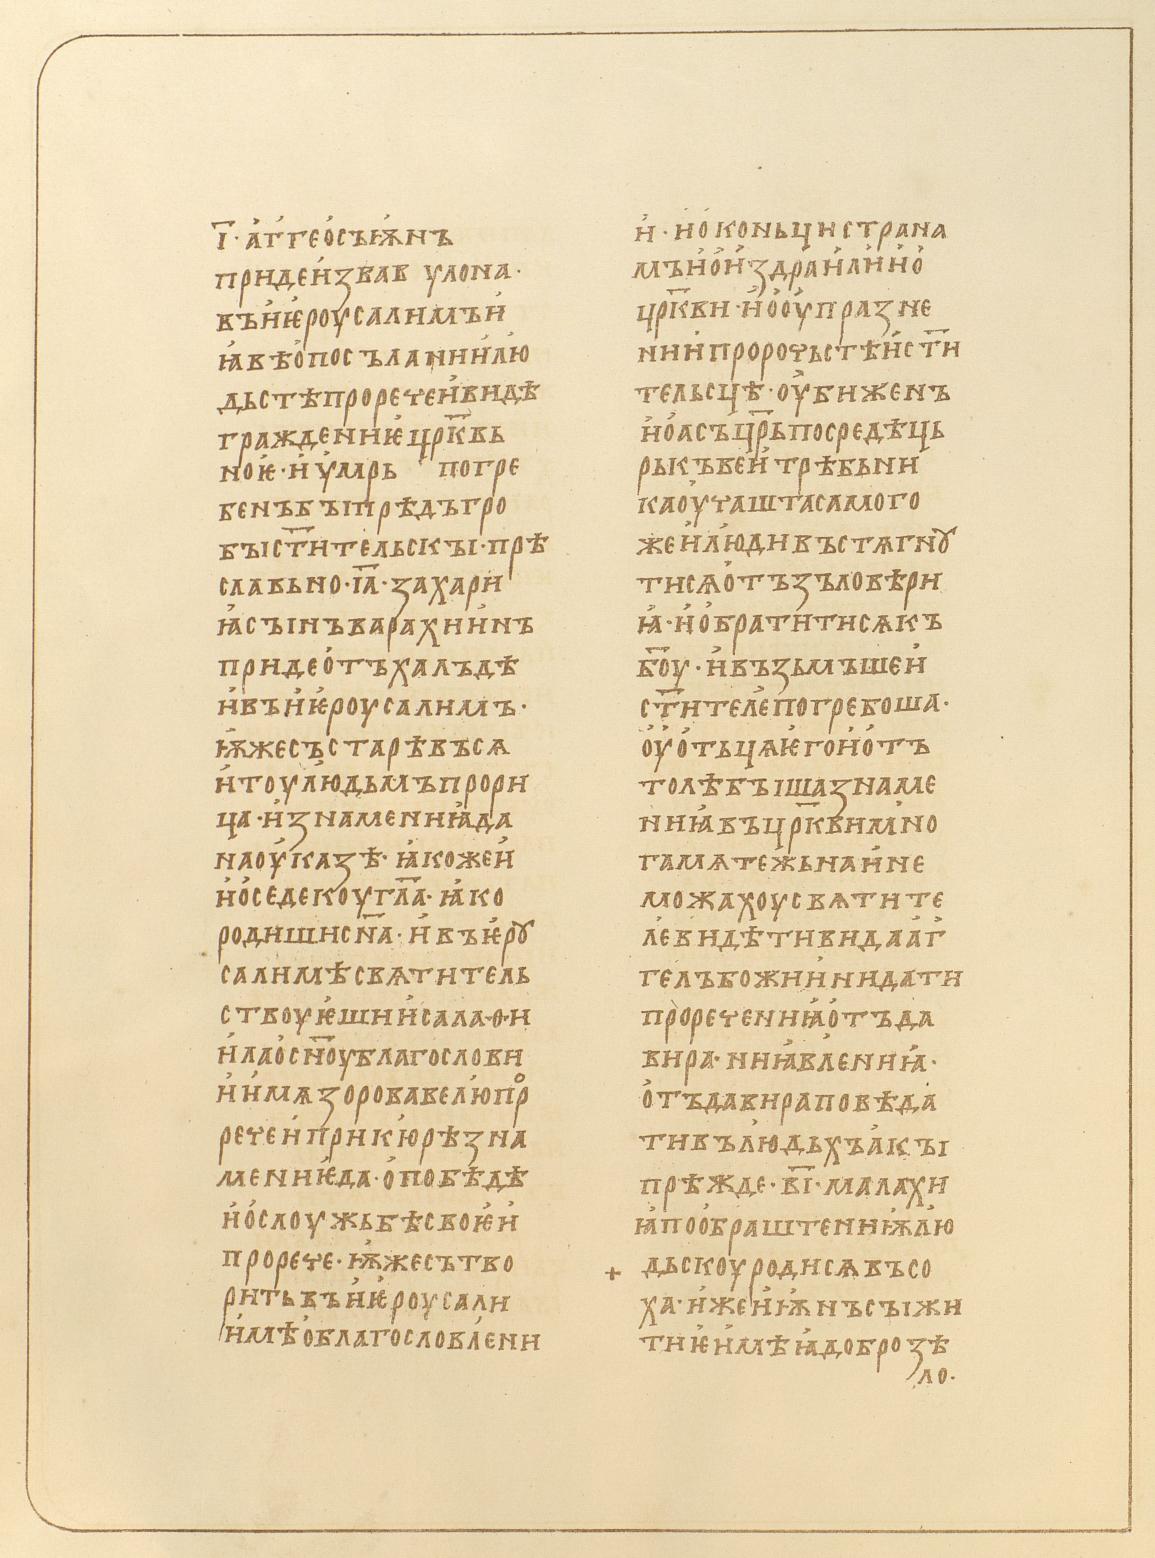 і҃· а҆ггео҆съѭ҆нъ
придеи҆звав улона·
въи҆ѥ҆роусалимъи҆
ꙗ҆вѣо҆посъланиилю҆
дьстѣпроречеи҆видѣ
граждениѥ҆цр҃квь
ноѥ҆·и҆у҆мрь погре
бенъбъіпрѣдъгро
бъіст҃ительскъі·прѣ
славьно·іа҃·захари
ꙗ҆съінъварахии҆нъ
придео҆тъхалъдѣ
и҆въи҆ѥ҆роусалимъ·
ѭ҆жесъстарѣвъсѧ
и҆тоулю҆дьмъпрори
ца·и҆знамениꙗ҆да
наоу҆казѣ·ꙗ҆кожеи҆
и҆о҆седекоугл҃а·ꙗ҆ко
родишисн҃а·и҆въѥ҆рꙋ
салимѣсвѧтитель
ствоуѥ҆шии҆сала·ѳ·и
и҆лао҆сн҃оублагослови
и҆и҆мѧзоровавелю҆прⷪ
речеи҆прикю҆рѣзна
мениѥ҆да·о҆побѣдѣ
и҆о҆слоужьбѣсвоѥ҆и҆
прорече·ѭ҆жесътво
ритьвъи҆ѥ҆росали
и҆мѣо҆благословлени
и҆·и҆о҆коньцистрана
мъи҆о҆и҆здраи҆лии҆о҆
цр҃кви·и҆о҆оу҆празне
нии҆пророчьстѣи҆ст҃и
тельсцѣ·оу҆биженъ
и҆о҆асъцр҃ьпосредѣць
рыкъвеи҆трѣбьни
каоу҆чаштасамого
жеи҆лю҆дивъстѧгнꙋ
тисѧо҆тъзъловѣри
ꙗ҆·и҆о҆братитисѧкъ
бо҃у·и҆възьмъшеи҆
ст҃ителепогребоша·
оу҆о҆тьцѧѥ҆гои҆о҆тъ
толѣбъішазнаме
ниꙗ҆въцр҃квимно
гамѧтежьнаи҆не
можахоусвѧтите
левидѣтивидаа҆г҆
гелъбожии҆нидати
прорѐчениꙗ҆о҆тъда
вира·ниꙗ҆влениꙗ҆·
о҆тъдавираповѣда
тивълю҆дьхъа҆къі
прѣжде·ві҃·малахи
ꙗ҆поо҆браштениѭ҆лю
дьскоуродисѧвъсо
ха·и҆жеи҆ѭ҆нъсъіжи
тиѥ҆и҆мѣꙗ҆доброзѣ
ло·